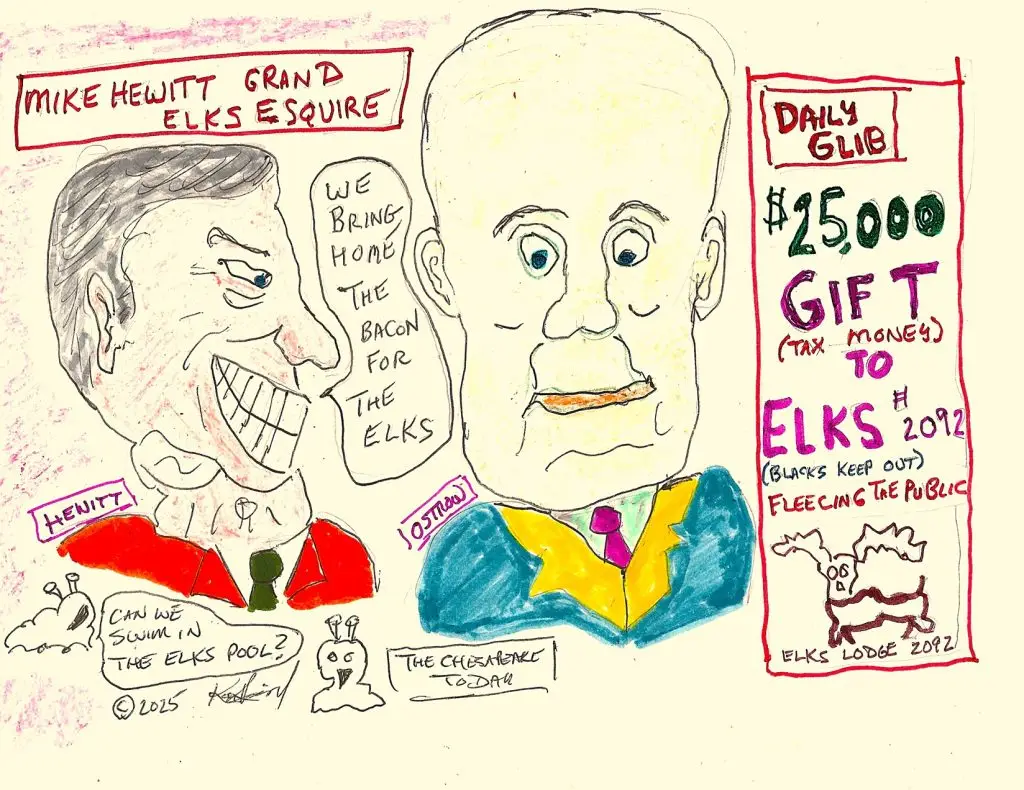 MIKE HEWITT GRAND
ELKS ESQUIRE
WE
BRING
HOME
THE
BACON
FOR
THE
ELKS
HEWITT
OSTROW
CAN WE
SWIM IN
THE ELKS POOL?
© 2025
THE CHESAPEAKE
TODAY
DAILY
GLIB
$25,000
GIFT
(TAX MONEY)
TO
ELKS # 2092
(BLACKS KEEP OUT)
FLEECING THE PUBLIC
ELKS LODGE 2092